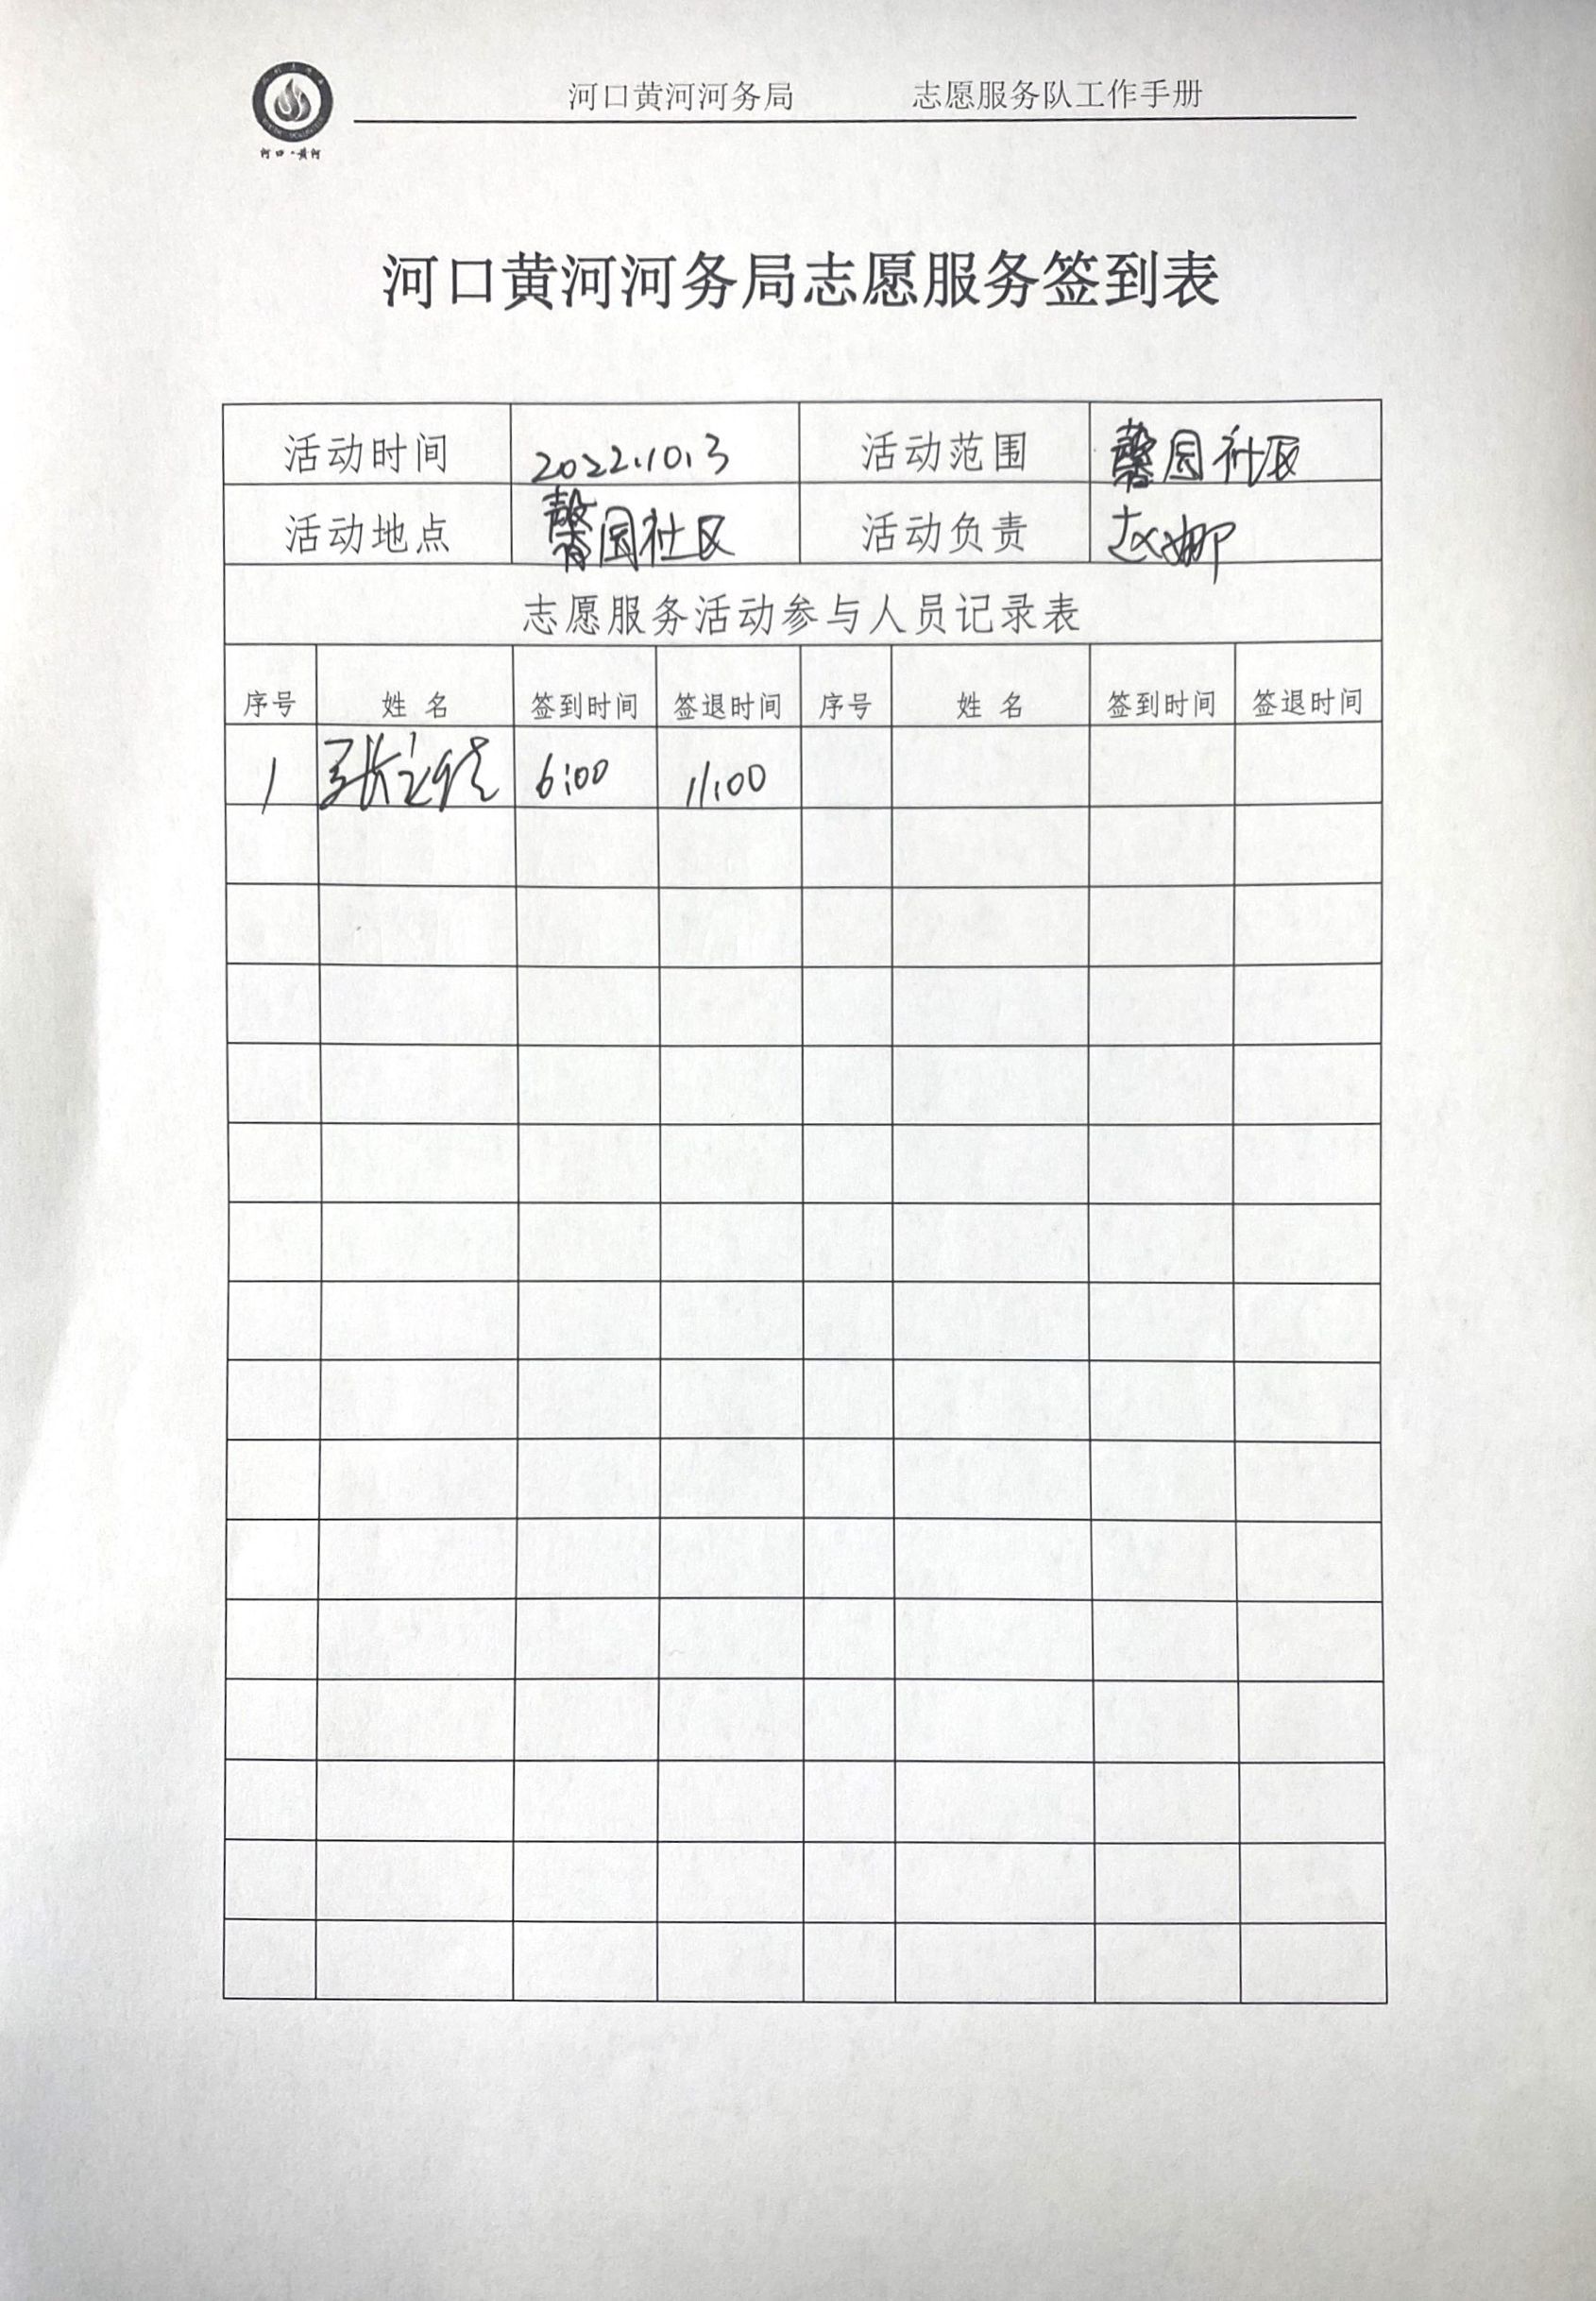 河口黄河河务局 志愿服务队工作手册
河口·黄河
河口黄河河务局志愿服务签到表
活动时间 2022.10.3 活动范围 馨园社区
活动地点 馨园社区 活动负责 赵娜
志愿服务活动参与人员记录表
序号 姓名 签到时间 签退时间 序号 姓名 签到时间 签退时间
1 张 6:00 11:00